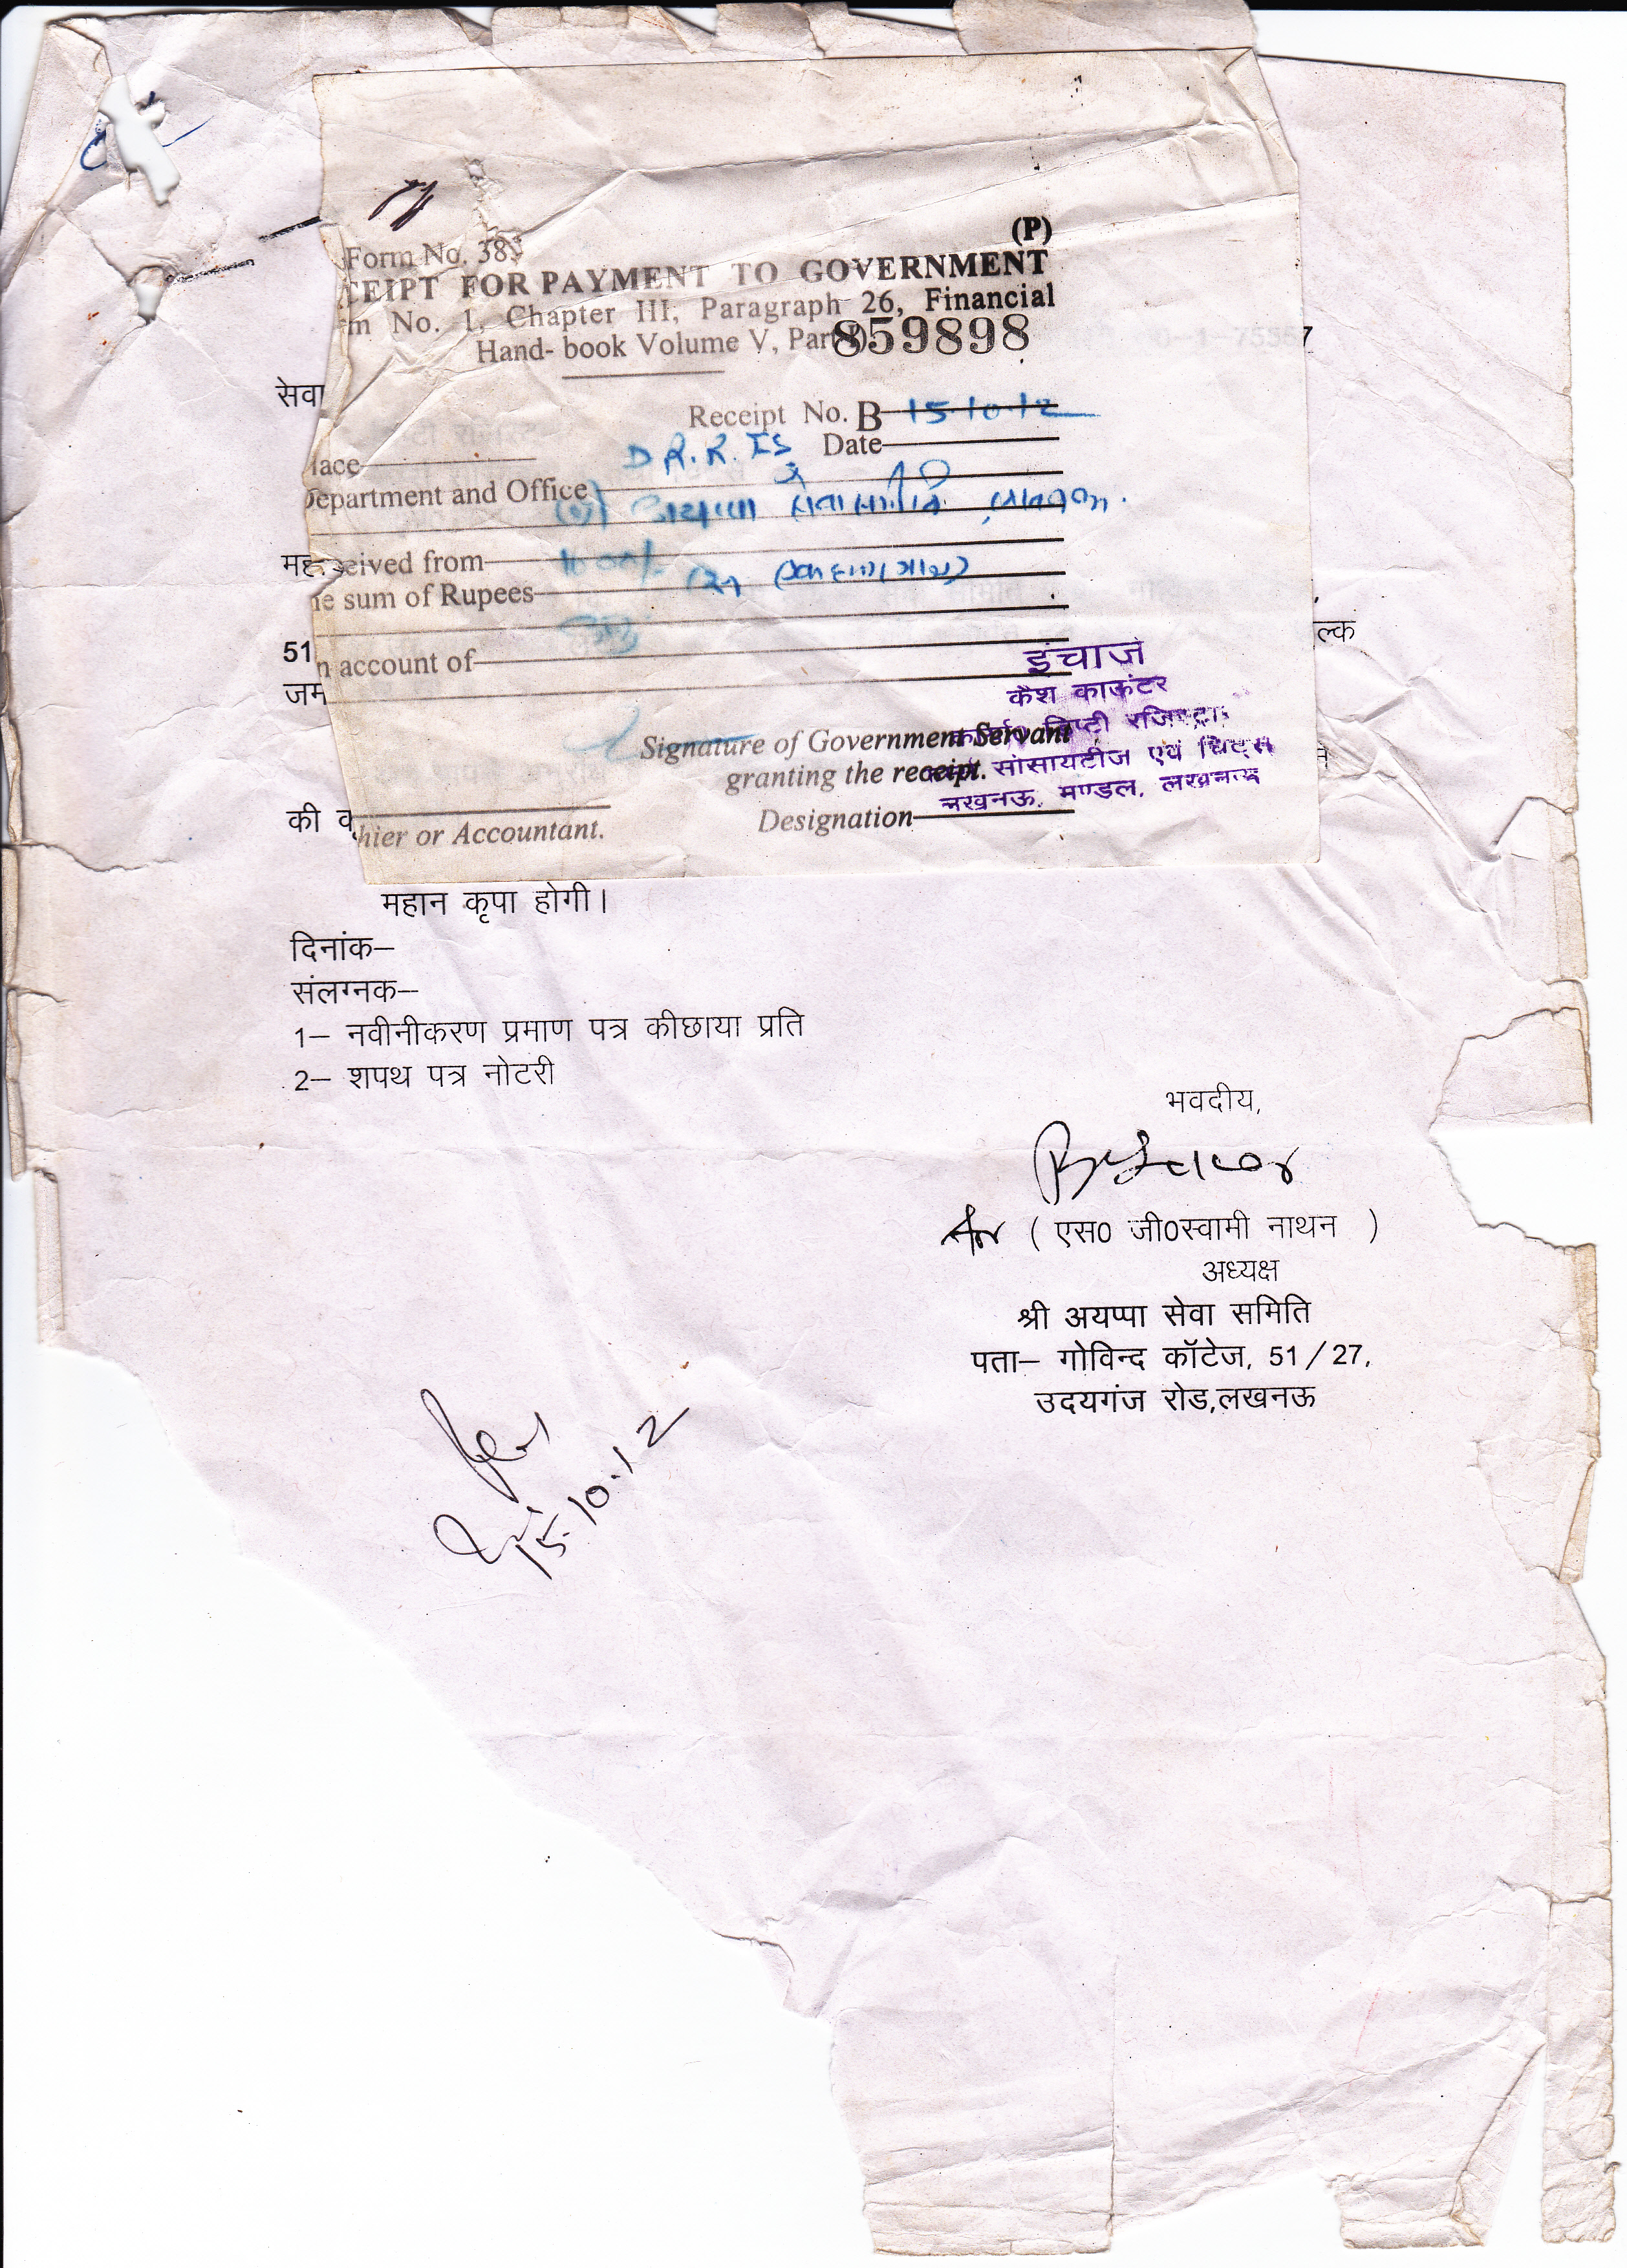 (P)
Form No. 385
CEIPT FOR PAYMENT TO GOVERNMENT
m No. 1, Chapter III, Paragraph 26, Financial
Hand- book Volume V, Part
859898
7
सेवा
Receipt No. B 15.10.12
Date
lace
D R. R. IS
Department and Office
सेवा समिति
मह
ceived from
1000/-
he sum of Rupees
ल्क
51
n account of
जम
इंचार्ज
कैश काऊंटर
डिप्टी रजिस्ट्रार
सोसायटीज एवं चिट्स
लखनऊ, मण्डल, लखनऊ
Signature of Government Servant
granting the receipt.
Designation
की व
hier or Accountant.
महान कृपा होगी।
दिनांक–
संलग्नक–
1– नवीनीकरण प्रमाण पत्र कीछाया प्रति
2– शपथ पत्र नोटरी
भवदीय,
( एस0 जी0स्वामी नाथन )
अध्यक्ष
श्री अयप्पा सेवा समिति
पता– गोविन्द कॉटेज, 51/27,
उदयगंज रोड,लखनऊ
15.10.12